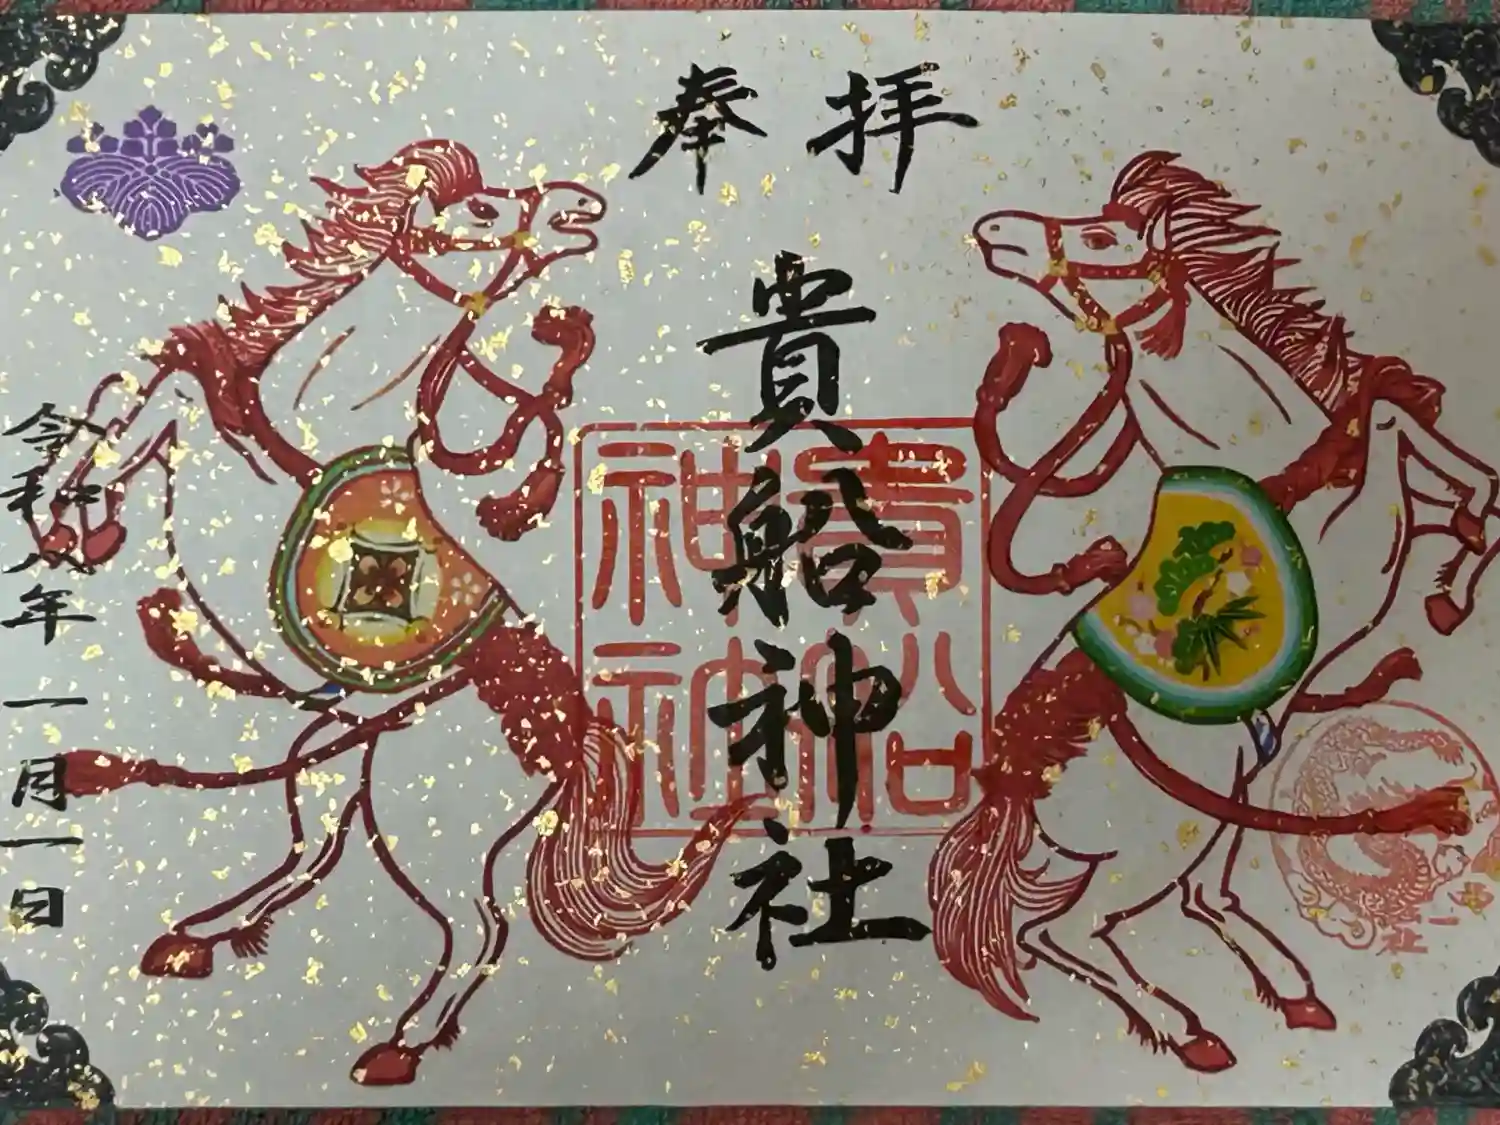 奉拝
貴船神社
貴船神社
令和八年一月一日